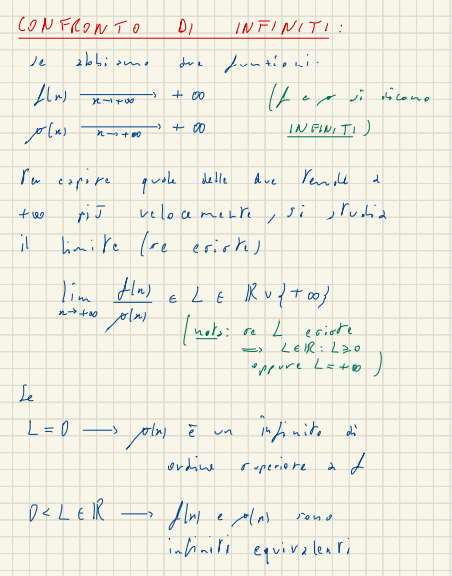 CONFRONTO DI INFINITI:
se abbiamo due funzioni.
f(n) ⟶ +∞ (f e g si dicono
n→+∞
g(n) ⟶ +∞ INFINITI)
n→+∞
Per capire quale delle due tende a
+∞ più velocemente, si studia
il limite (se esiste)
lim f(n)/g(n) ∈ L ∈ ℝ ∪ {+∞}
n→+∞
(nota: se L esiste
⟹ L∈ℝ: L≥0
oppure L=+∞)
Se
L = 0 ⟶ g(n) è un infinito di
ordine superiore a f
0 < L ∈ ℝ ⟶ f(n) e g(n) sono
infiniti equivalenti